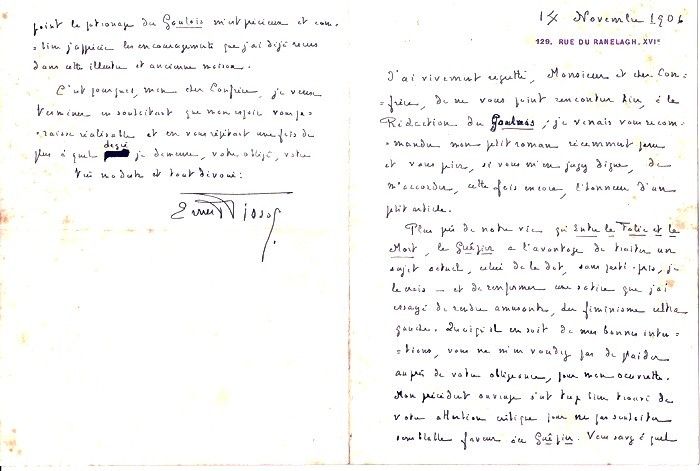 14 Novembre 1906
129, RUE DU RANELAGH. XVIe
J'ai vivement regretté, Monsieur et cher Con-
-frère, de ne vous point rencontrer hier, à la
Rédaction du Gaulois; je venais vous recom-
-mander mon petit roman récemment paru
et vous prier, si vous m'en jugez digne, de
m'accorder, cette fois encore, l'honneur d'un
petit article.
Plus près de notre vie qu'Entre la Folie et la
Mort, le Guêpier a l'avantage de traiter un
sujet actuel, celui de la dot, sans parti-pris, je
le crois — et de renfermer une satire que j'ai
essayé de rendre amusante, du féminisme ultra
gauche. Quoiqu'il en soit de mes bonnes inten-
-tions, vous ne m'en voudrez pas de plaider
auprès de votre obligeance, pour mon œuvrette.
Mon précédent ouvrage s'est trop bien trouvé de
votre attention critique pour ne pas souhaiter
semblable faveur au Guêpier. Vous savez à quel
point le patronage du Gaulois m'est précieux et com-
-bien j'apprécie les encouragements que j'ai déjà reçus
dans cette illustre et ancienne maison.
C'est pourquoi, mon cher Confrère, je veux
terminer en souhaitant que mon espoir vous pa-
-raisse réalisable et en vous répétant une fois de
plus à quel degré je demeure, votre obligé, votre
très modeste et tout dévoué:
Ernest